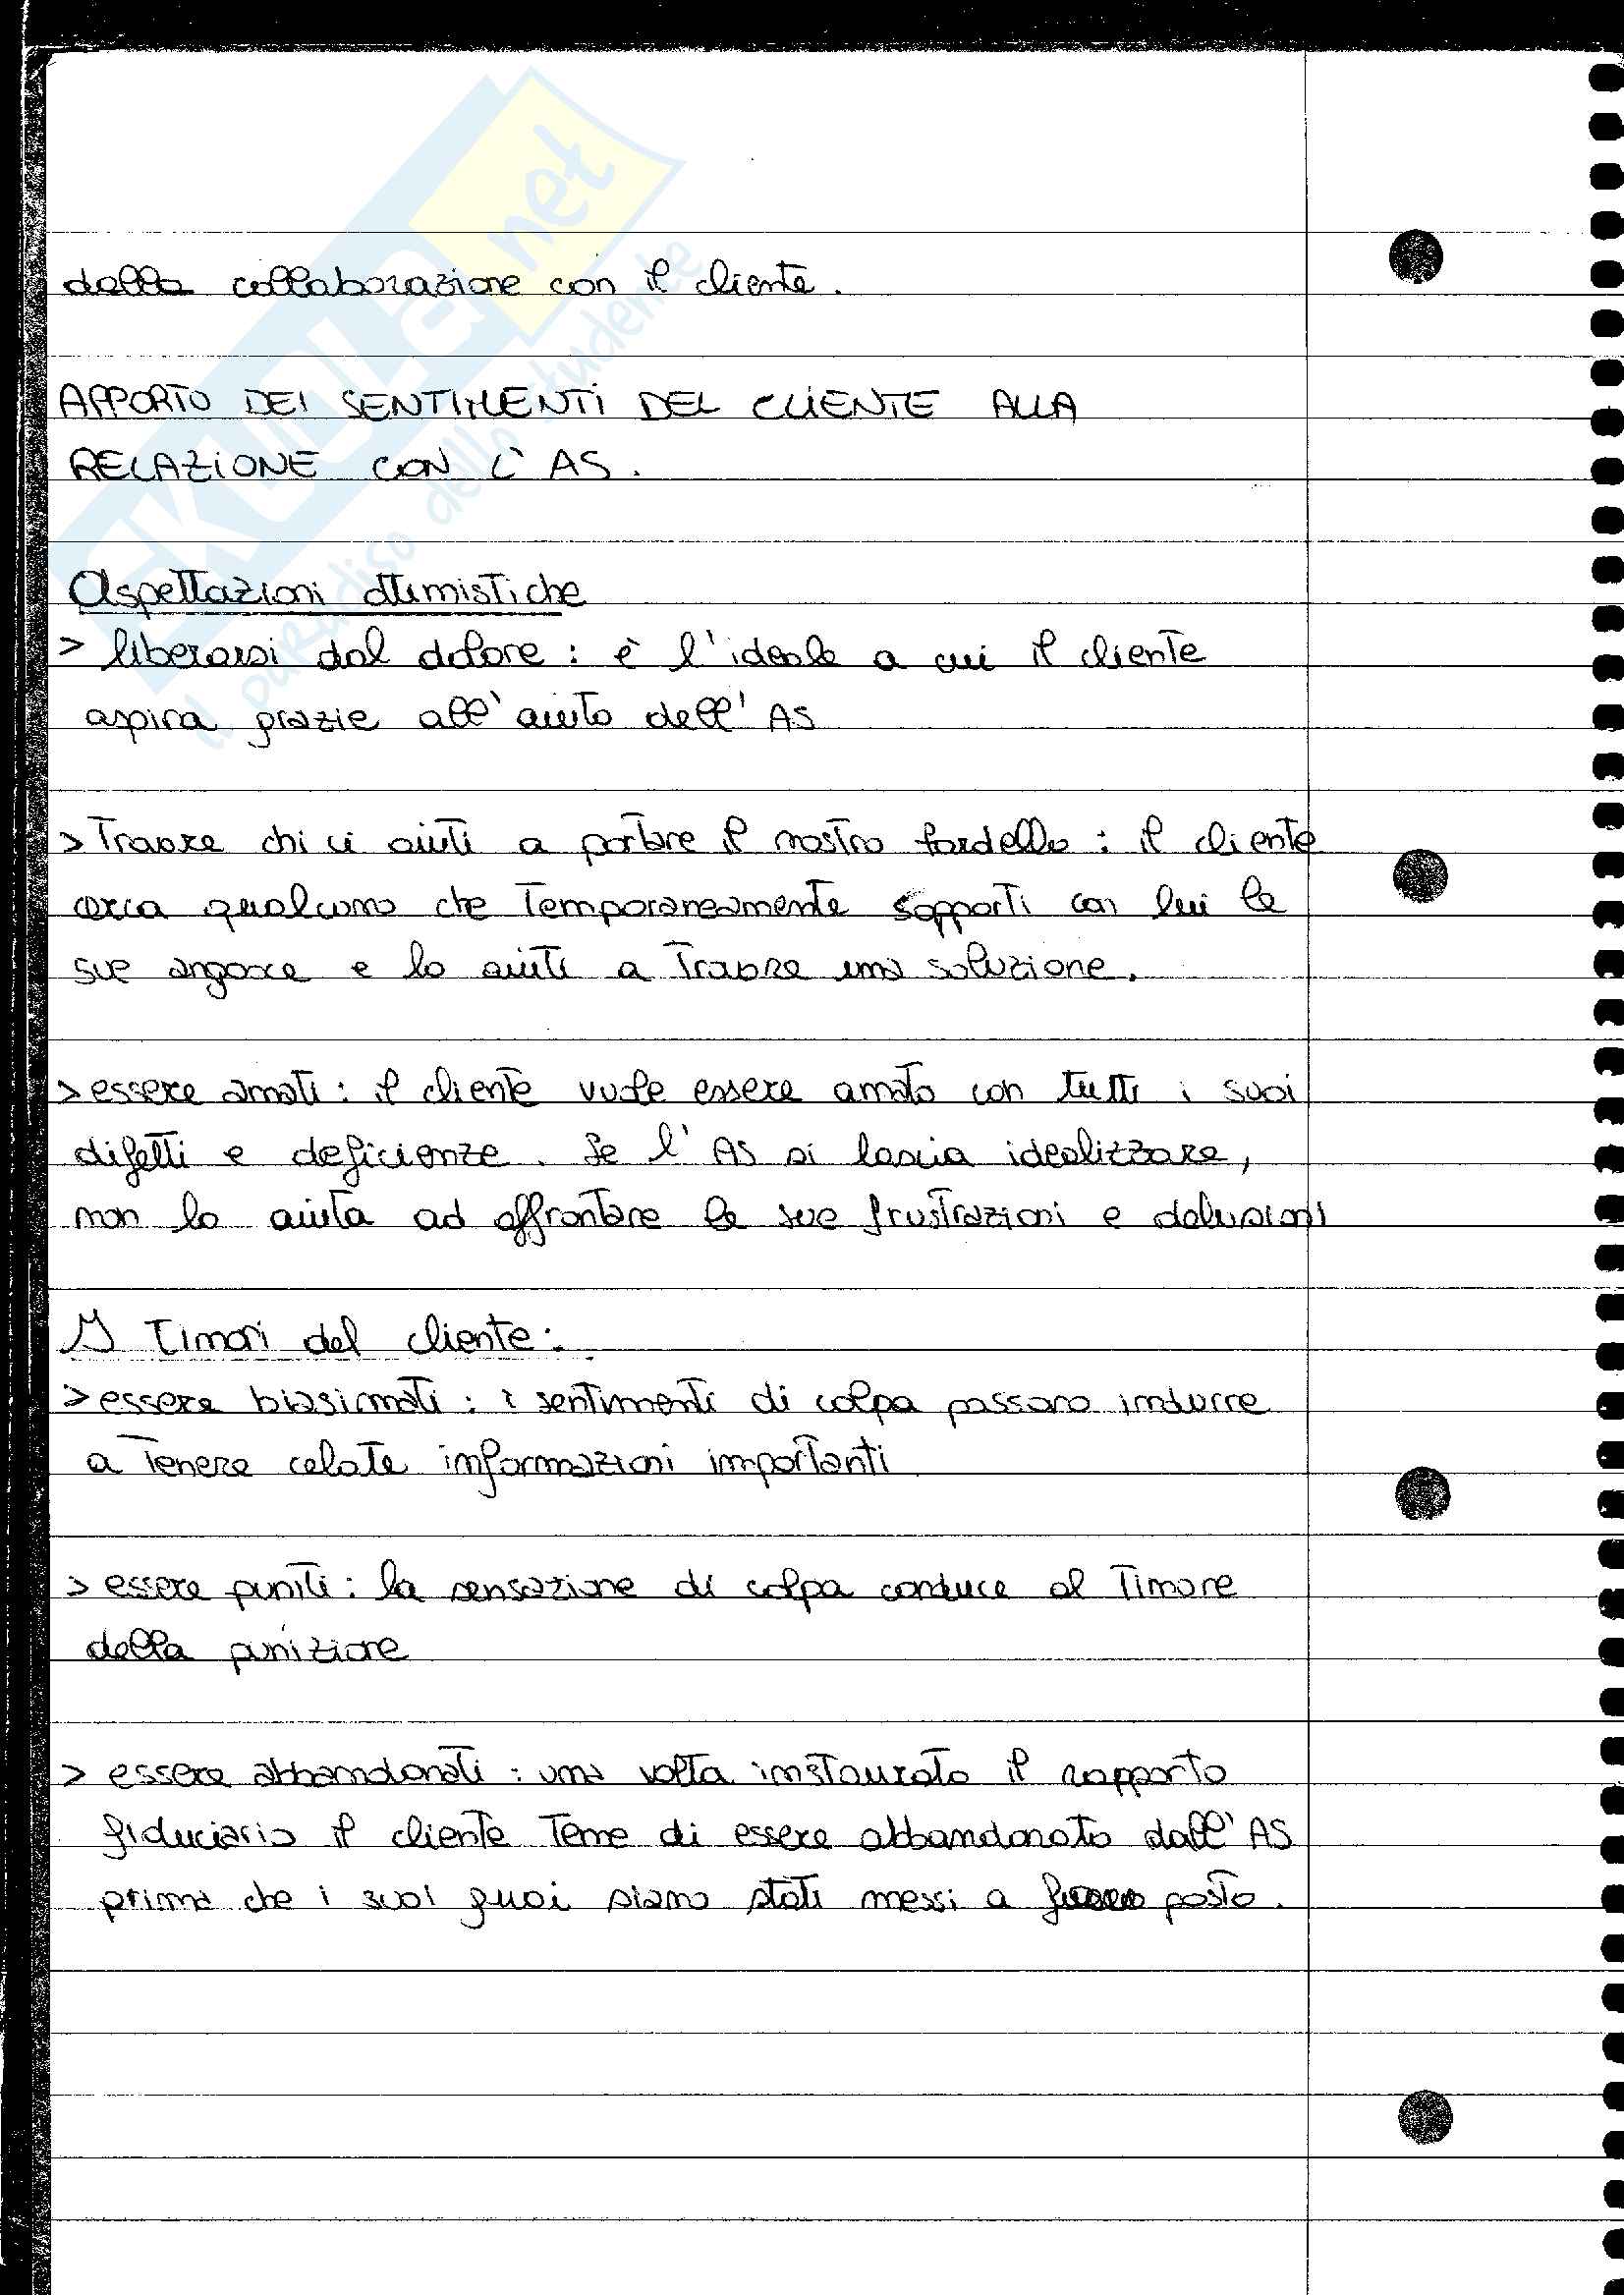 della collaborazione con il cliente.
APPORTO DEI SENTIMENTI DEL CLIENTE ALLA
RELAZIONE CON L'AS.
Aspettazioni ottimistiche
> liberarsi dal dolore : è l'ideale a cui il cliente
aspira grazie all'aiuto dell'AS
> Trovare chi ci aiuti a portare il nostro fardello : il cliente
cerca qualcuno che Temporaneamente sopporti con lui le
sue angosce e lo aiuti a Trovare una soluzione.
> essere amati : il cliente vuole essere amato con tutti i suoi
difetti e deficienze. Se l'AS si lascia idealizzare,
non lo aiuta ad affrontare le sue frustrazioni e delusioni
I Timori del cliente :
> essere biasimati : i sentimenti di colpa possono indurre
a Tenere celate informazioni importanti
> essere puniti : la sensazione di colpa conduce al Timore
della punizione
> essere abbandonati : una volta instaurato il rapporto
fiduciario il cliente Teme di essere abbandonato dall'AS
prima che i suoi guai siano stati messi a posto.
SKUOLA.net
il paradiso dello studente